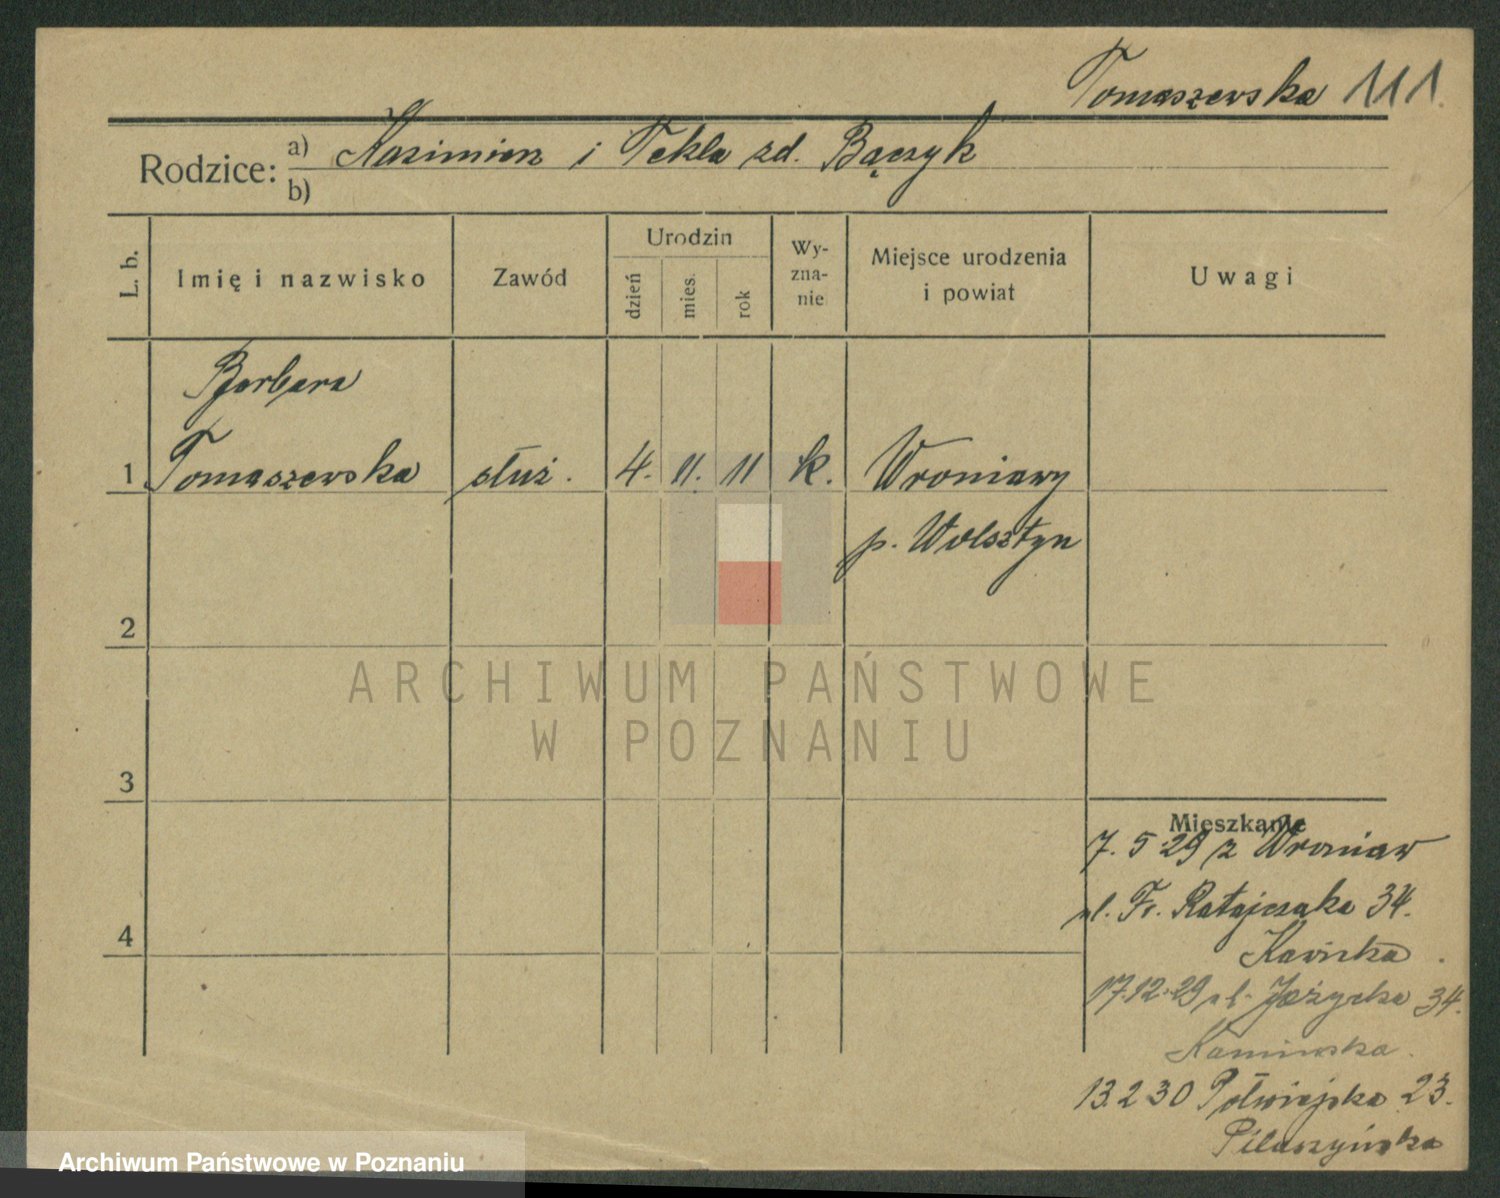 Tomaszewska 111.
Rodzice: a) Kazimierz i Tekla zd. Bączyk
b)
L. b.
Imię i nazwisko
Zawód
Urodzin
dzień
mies.
rok
Wy-
zna-
nie
Miejsce urodzenia
i powiat
Uwagi
Barbara
1 Tomaszewska służ. 4. 11. 11 k. Wroniawy
p. Wolsztyn
2
ARCHIWUM PAŃSTWOWE
W POZNANIU
3
Mieszkanie
7. 5 29 z Wroniaw
ul. Fr. Ratajczaka 34.
4
Kawicka.
17.12.29 ul. Jeżycka 34.
Kaminska.
13.2 30 Półwiejska 23.
Pilaszyńska
Archiwum Państwowe w Poznaniu